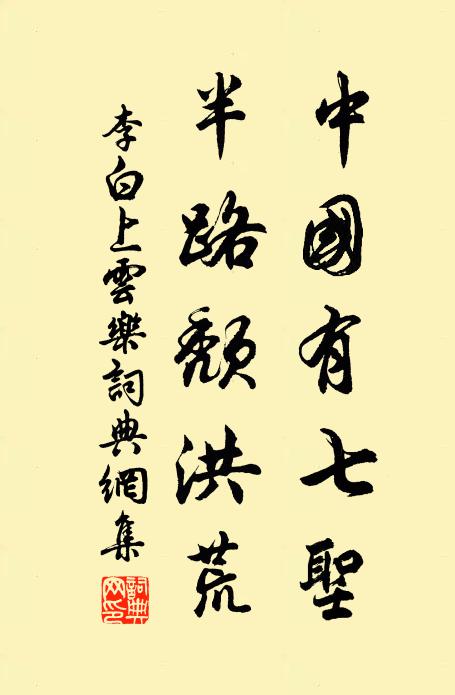 中國有七聖
半路頹洪荒
李白上雲樂詞典網集
詞典網印